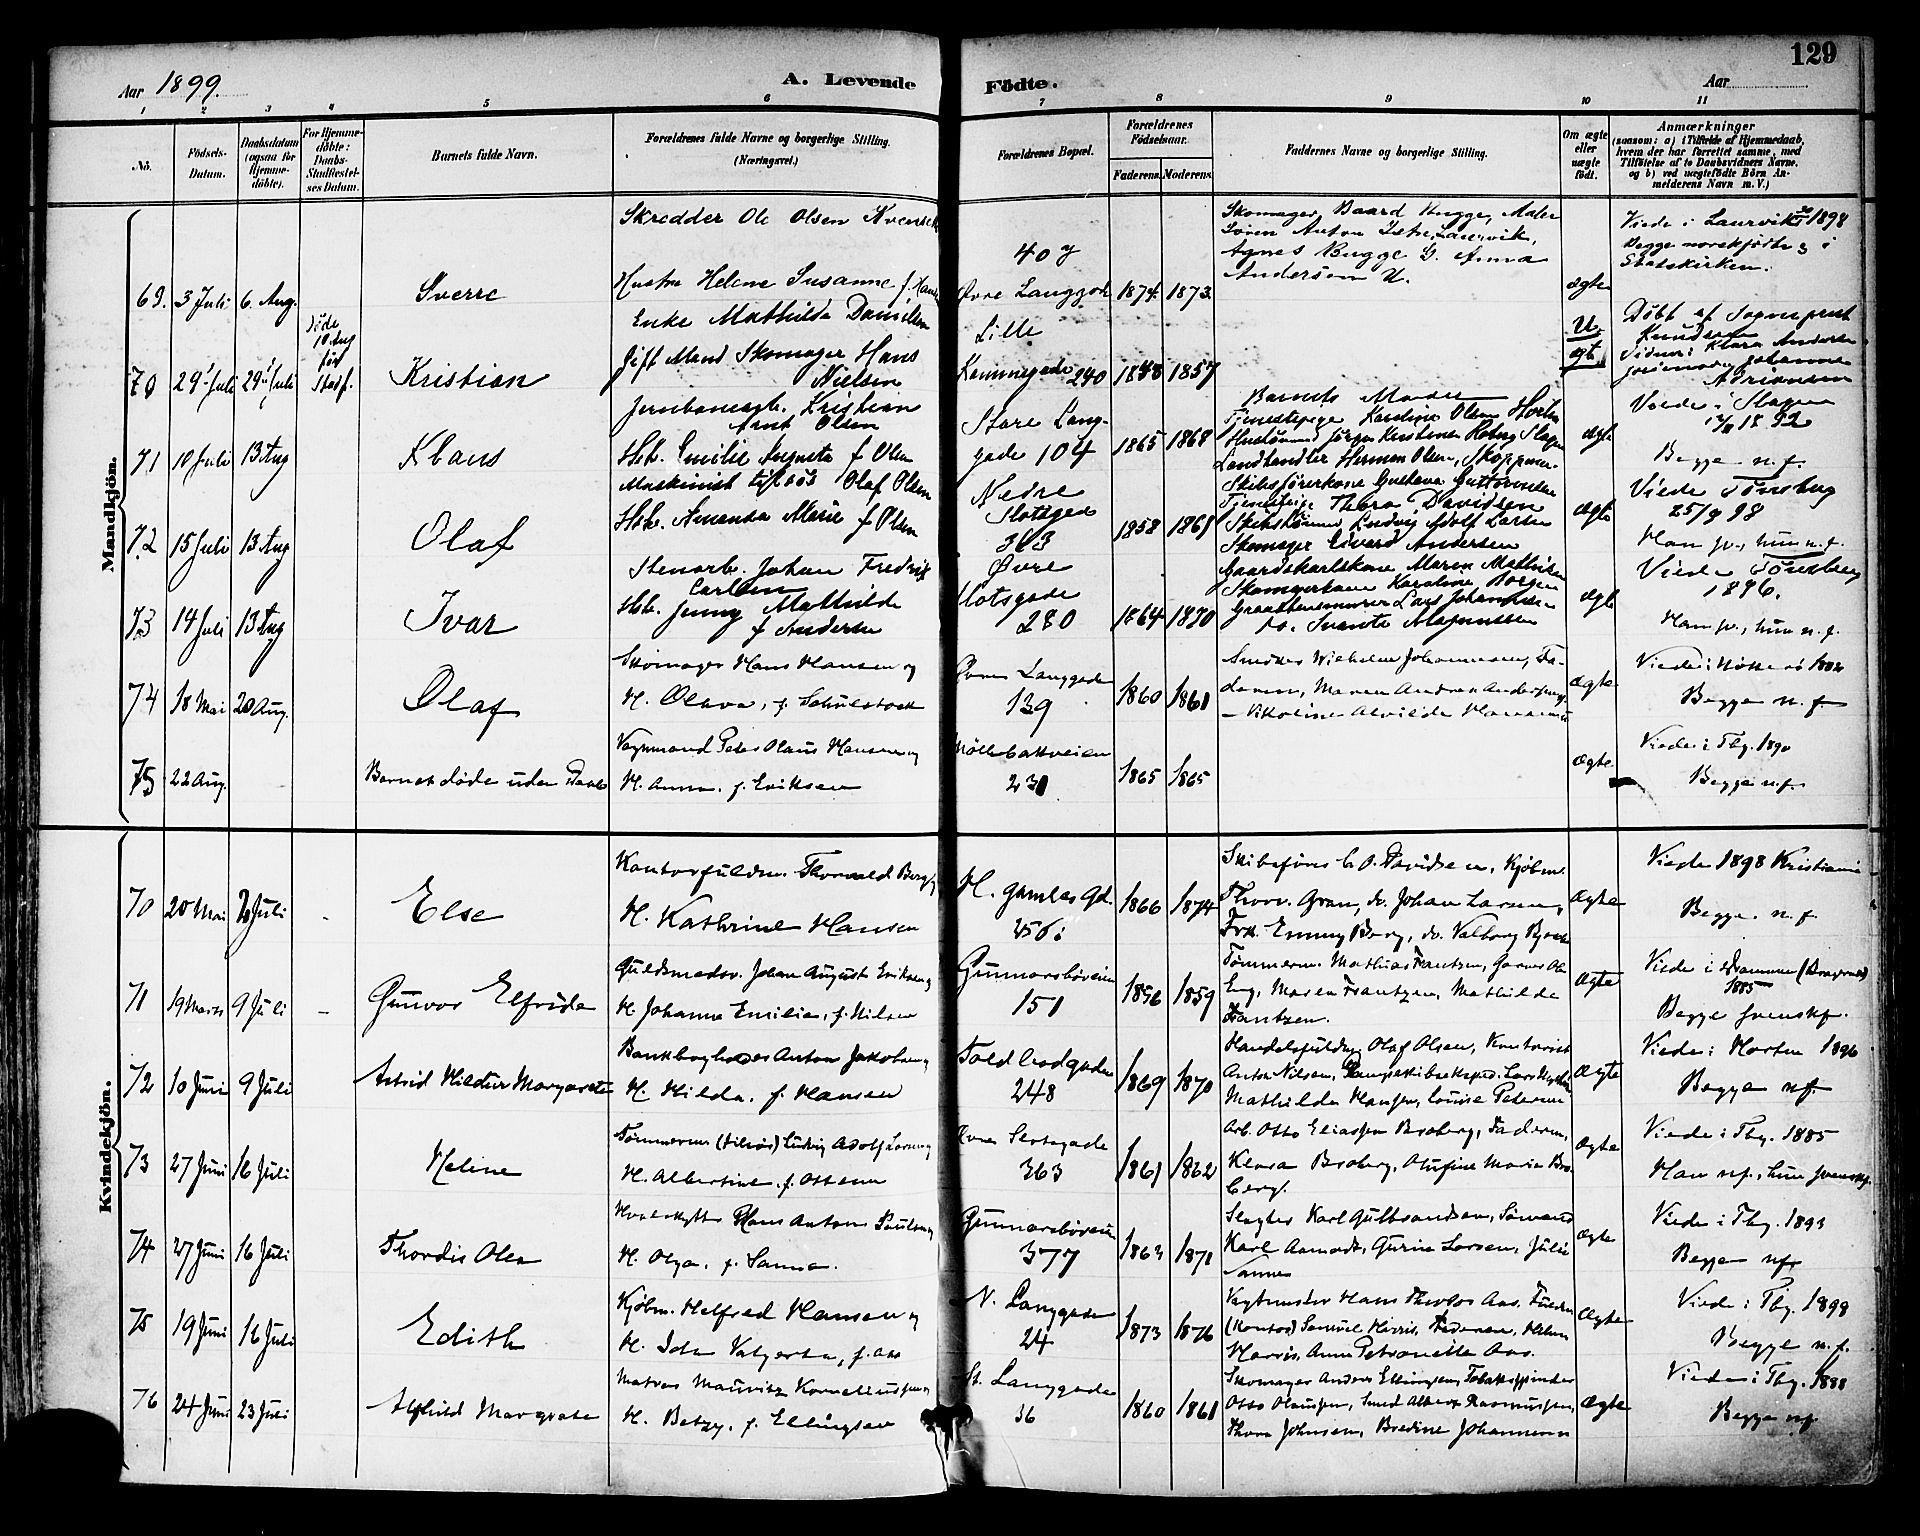 129
Aar 1899.
A. Levende
Födte.
Aar
1 2 3 4 5 6 7 8 9 10 11
No.
Födsels-
Datum.
Daabsdatum
(ogsaa for
Hjemme-
döbte).
For Hjemme-
döbte:
Daabs-
Stadfæstel-
ses Datum.
Barnets fulde Navn.
Forældrenes fulde Navne og borgerlige Stilling.
(Næringsvei.)
Forældrenes Bopæl.
Forældrenes
Födselsaar.
Faderens.
Moderens.
Faddernes Navne og borgerlige Stilling.
Om ægte
eller
uægte
födt.
Anmærkninger
(saasom: a) i Tilfælde af Hjemmedaab,
hvem der har forrettet samme, med
Tilföielse af to Daabsvidners Navne,
og b) ved uægtefödte Börn An-
melderens Navn m. V.)
Mandkjön.
69. 3 Juli 6. Aug. Sverre
Skrædder Ole Olsen
Hustru Helene Susanne f.
40
Øvre Langgade
1874. 1873.
Skomager Baard Bugge, Maler
Søren Anton Laurvik,
Agnes Bugge G. Anna
Andersen U.
ægte
Viede i Laurvik 1898
Begge norskfødte og i
Statskirken.
70 29 Juli 29 Juli
døde
10 Aug
før
Stadf.
Kristian
Enke Mathilda Danielsen
Gift Mand Skomager Hans
Nielsen
Lille
240
1848 1857
U-
ægt.
Døbt af Sogneprest
Knudsen
Vidner: Klara Andersen
jordemor, Johanne
Adriansen
Barnets Moder
71 10 Juli 13 Aug Klaus
Jernbanearb. Kristian
Arnt Olsen
Hst. Emilie Augusta f Olsen
Store Lang-
gade 104
1865 1868
Tjenestepige Karoline Olsen
Landhandler Herman Olsen,
ægte
Viede i Slagen
1892
Begge n. f.
72 15 Juli 13 Aug Olaf
Maskinist tilsøs Olaf Olsen
Hst. Amanda Marie f Olsen
Nedre
Slotsgade
363
1858 1861
Skibsførerkone Gustava Guttormsen
Tjenestepige Thora Davidsen
Ludvig Adolf Larsen
ægte
Viede Tönsberg
25/9 98
Han sv., hun n. f.
73 14 Juli 13 Aug Ivar
Stenarb. Johan Fredrik
Carlsen
Hst. Jenny Mathilde
f Andersen
Øvre
Slotsgade
280
1864 1870
Skomager Sivard Andersen
Gaardskarlskone Maren Mathisen
Skomagerkone Karoline Borgen
Lars Johannsen
do. Svante Magnussen
ægte
Viede Tönsberg
1896.
Han sv., hun n. f.
74 18 Mai 20 Aug. Olaf
Skomager Hans Hansen og
H. Olava, f.
Øvre Langgade
139
1860 1861
Wilhelm Johannesen, Fa-
deren, Maren Andrea Andersen,
Nikoline Alvilde Hansen
Ægte
Viede i 1882
Begge n. f.
75 22 Aug. Barnet døde uden Daab
Vognmand Peder Olaus Hansen og
H. Anna f. Eriksen
Møllebakveien
230
1865 1865
Ægte
Viede i Tbg. 1890
Begge n. f.
Kvindekjön.
70 20 Mai 2 Juli - Else
Kontorfuldm. Thorvald Berg og
H. Kathrine Hansen
N. Gamlegd.
256
1866 1874
Skibsfører C. O. Davidsen, Kjøbm.
Thorv. Gran, do. Johan Larsen,
Frk. Emmy Berg, do. Valborg
Ægte
Viede 1898 Kristiania
Begge n. f.
71 19 Marts 9 Juli - Gunvor Elfrida
Guldsmedsv. Johan August Eriksen og
H. Johanne Emilie, f. Nilsen
Gunnarsbøveien
151
1856 1859
Tømmerm. Mathias Frantzen,
Eng, Maren Frantzen, Mathilde
Frantzen.
Ægte
Viede i Drammen (Bragernes)
1885
Begge svenskf.
72 10 Juni 9 Juli Astrid Hildur Margarete
Bankbogholder Anton Jakobsen og
H. Hilda, f. Hansen
Toldbodgaden
248
1869 1870
Handelsfuldm. Olaf Olsen, Kontorist
Anton Nilsen,
Mathilde Hansen, Louise Petersen
Ægte
Viede i Horten 1896
Begge n. f.
73 27 Juni 16 Juli Helene
Tømmerm. (tilsøs) Ludvig Adolf Larsen og
H. Albertine f. Ottesen
Øvre Slotsgade
363
1861 1862
Arb. Otto Eliassen Broberg, Faderen,
Klara Broberg, Olufine Marie Bro-
berg.
Ægte
Viede i Tbg. 1885
Han n. f., hun svenskf.
74 27 Juni 16 Juli Thordis Olea
Hvalskytter Hans Anton Paulsen og
H. Olga, f. Sanne.
Gunnarsbøveien
377
1863 1871
Slagter Karl Gulbrandsen, Sømand
Karl Aamodt, Gurine Larsen, Julie
Sanne
Ægte
Viede i Tbg. 1893
Begge n. f.
75 19 Juni 16 Juli Edith
Kjøbm. Helfred Hansen og
H. Ida Valgerta, f. Aas
N. Langgade
24
1873 1876
Vagtmester Hans Aas,
(Kontor) Samuel Harris, Faderen, Helene
Harris, Anne Petronelle Aas.
Ægte
Viede i Tbg. 1898
Begge n. f.
76 24 Juni 23 Juli Alfhild Margrete
Matros Mauritz Korneliussen og
H. Betzy, f. Ellingsen
St. Langgade
36
1860 1861
Skomager Anders Ellingsen, Tobakspinder
Otto Olaussen, Smed Albert Rasmussen,
Thora Johnsen, Bredine Johannesen
Ægte
Viede i Tbg. 1888
Begge n. f.